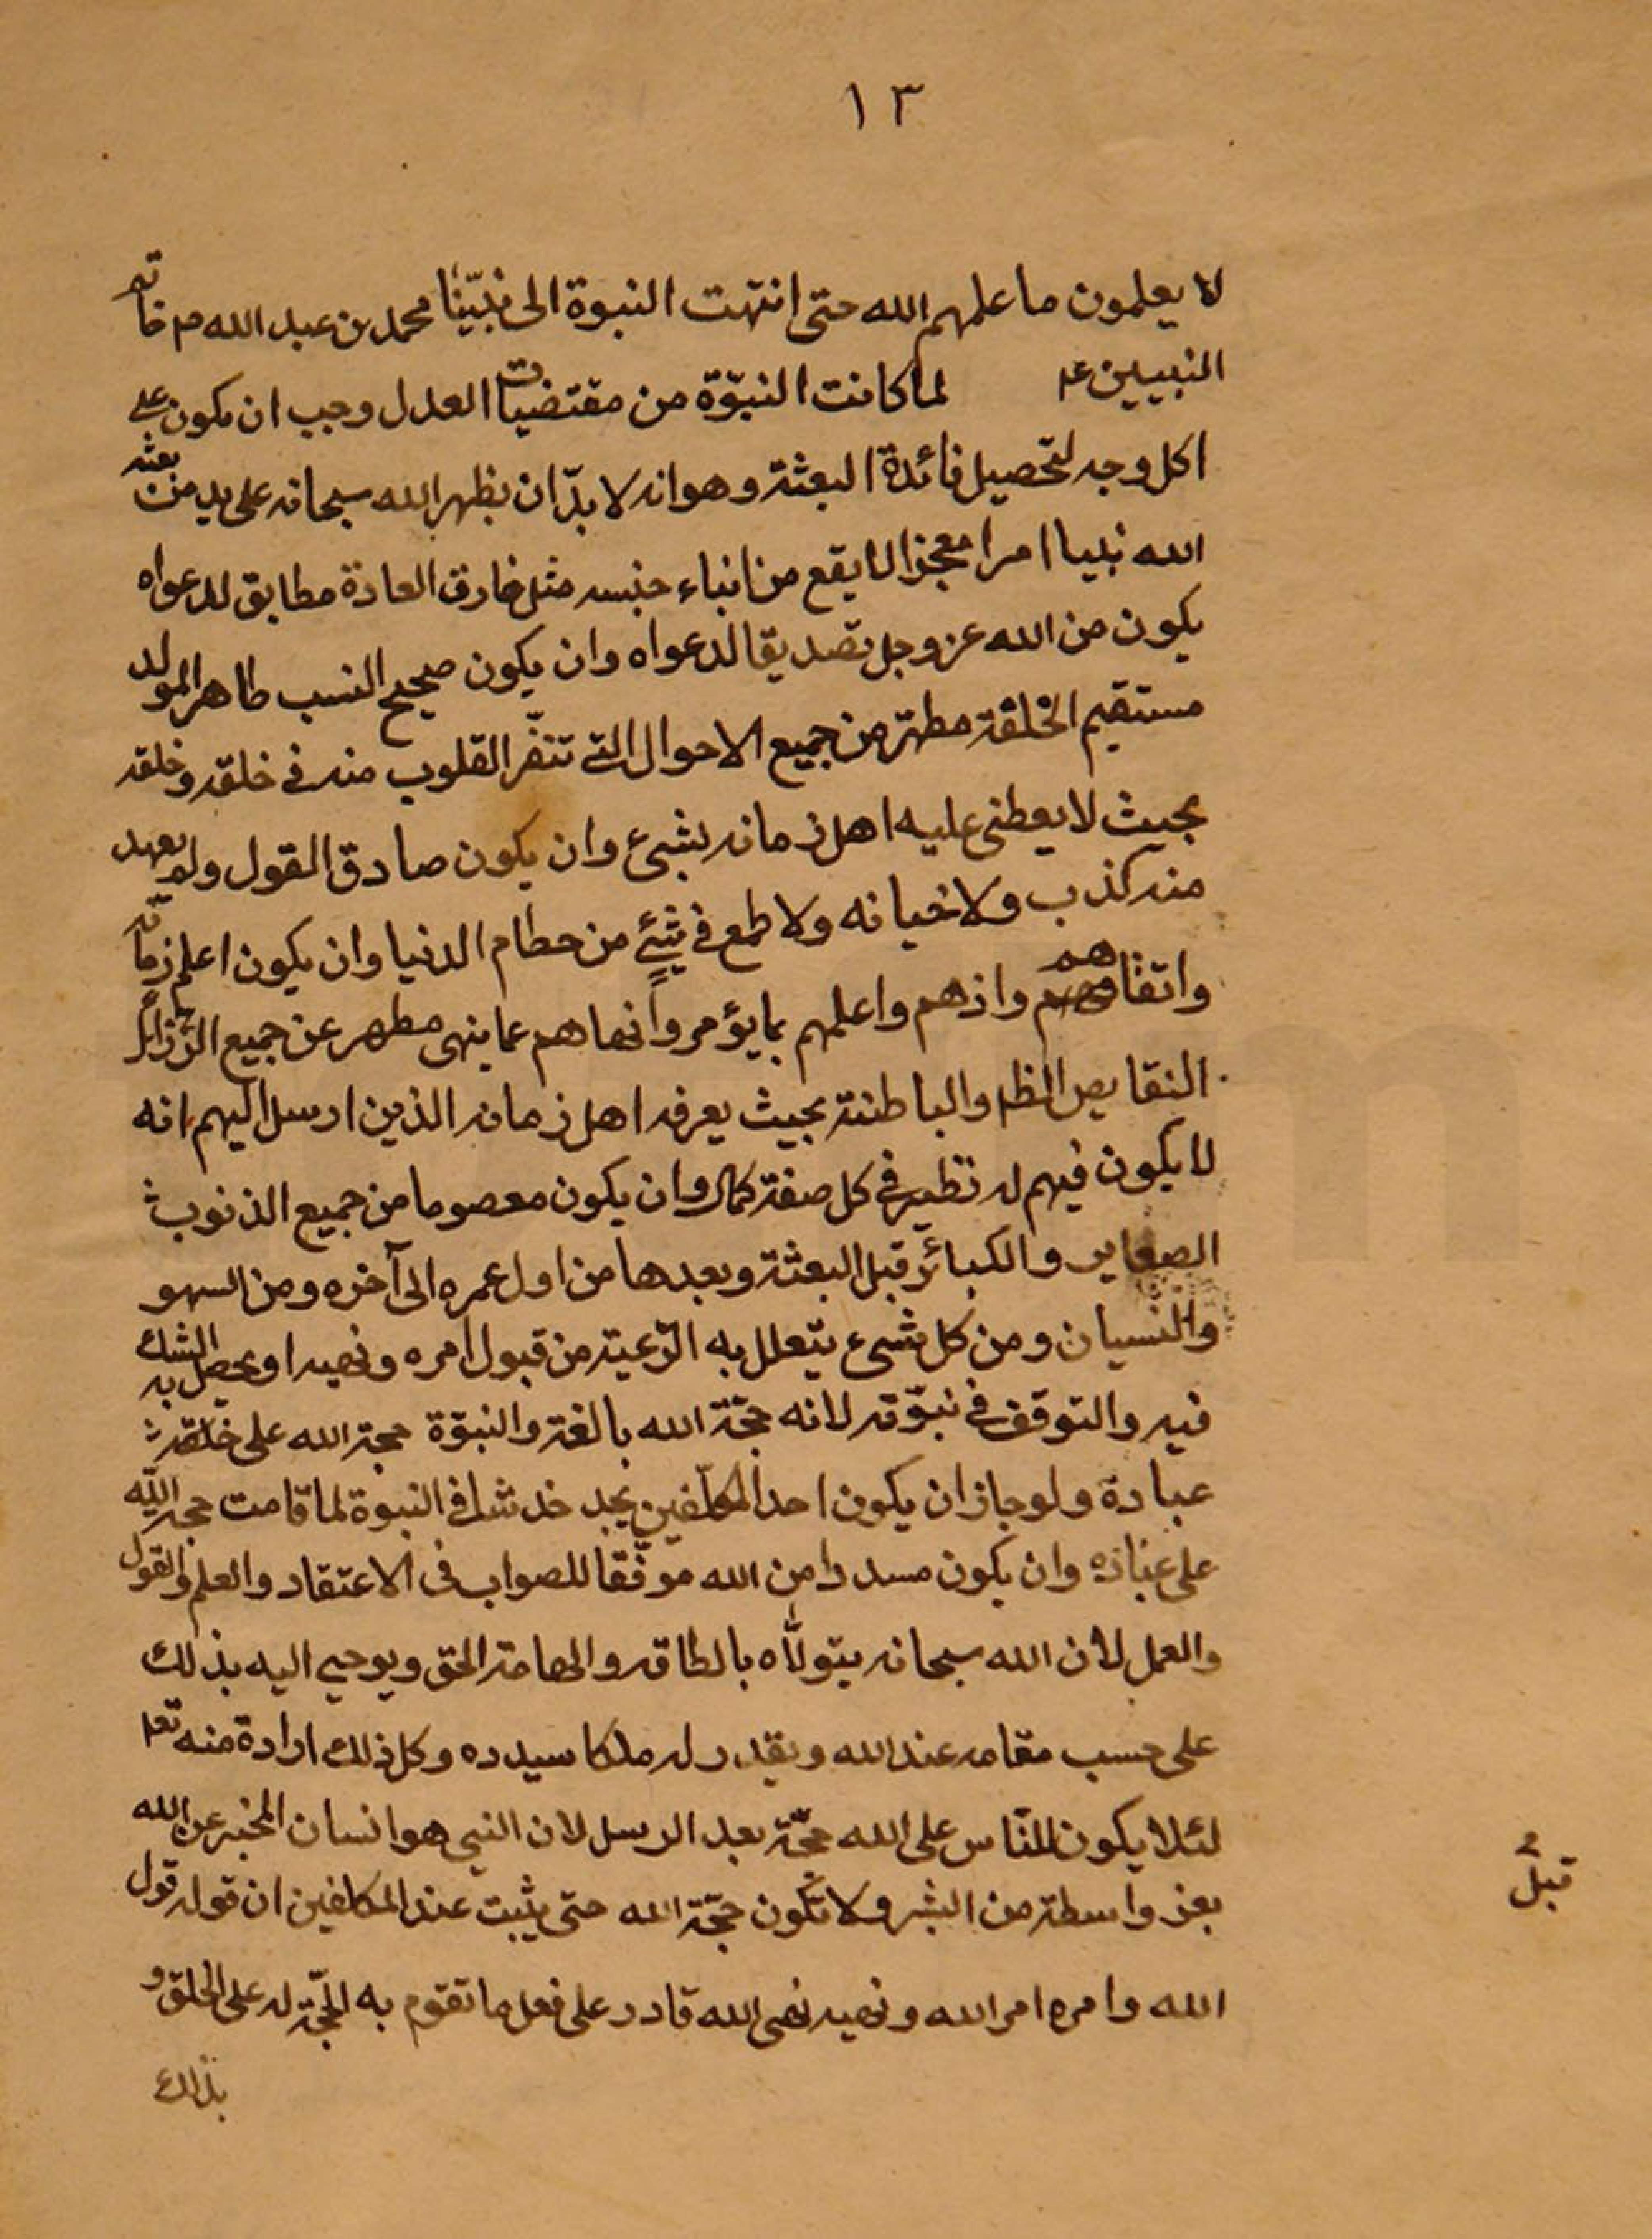 ١٣
لا يعلمون ما علمهم الله حتى انتهت النبوة الى نبيّنا محمد بن عبد الله ص خاتم
النبيين ع لما كانت النبوّة من مقتضيات العدل وجب ان يكون على
اكل وجه لتحصيل فائدة البعثة وهو انه لا بدّ ان يظهر الله سبحانه على يد من بعثه
الله نبيا امرا معجزا لا يقع من ابناء جنسه مثل خارق العادة مطابق لدعواه
يكون من الله عز وجل تصديقا لدعواه وان يكون صحيح النسب طاهر المولد
مستقيم الخلقة مطهر من جميع الاحوال التي تنفّر القلوب منه في خلقه وخلقه
بحيث لا يطعن عليه اهل زمانه بشيئ وان يكون صادق القول ولم يعهد
منه كذب ولا خيانه ولا طمع في شيئ من حطام الدنيا وان يكون اعلم زمانه
واتقاهم وازهم واعلمهم بما يؤمر وانهاهم عما ينهى مطهر عن جميع الرذائل
النقايص الظم والباطنة بحيث يعرفه اهل زمانه الذين ارسل اليهم انه
لا يكون فيهم له نظير في كل صفة كمال وان يكون معصوما من جميع الذنوب
الصغاير والكبائر قبل البعثة وبعدها من اول عمره الى آخره ومن السهو
والنسيان ومن كل شيئ يتعلل به الرّعية من قبول امره ونهيه او يحصل به الشك
فيه والتوقف في نبوّته لانه حجّة الله بالغة والنبوّة حجة الله على خلقه
عباده ولو جاز ان يكون احد المكلّفين يجد خدشا في النبوة لما قامت حجة الله
على عباده وان يكون مسددا من الله موفّقا للصواب في الاعتقاد والعلم والقول
والعمل لان الله سبحانه يتولّاه بالطافه والهامه الحق ويوحي اليه بذلك
على حسب مقامه عند الله ويقدر له ملكا سيدده وكل ذلك ارادة منه تعا
لئلا يكون للنّاس على الله حجّة بعد الرسل لان النبي هو انسان المخبر عن الله
بغير واسطة من البشر ولا تكون حجّة الله حتى يثبت عند المكلفين ان قوله قول
الله وامره امر الله ونهيه نهي الله قادر على فعل ما تقوم به الحجّة له على الخلق و
بذلك
قبل